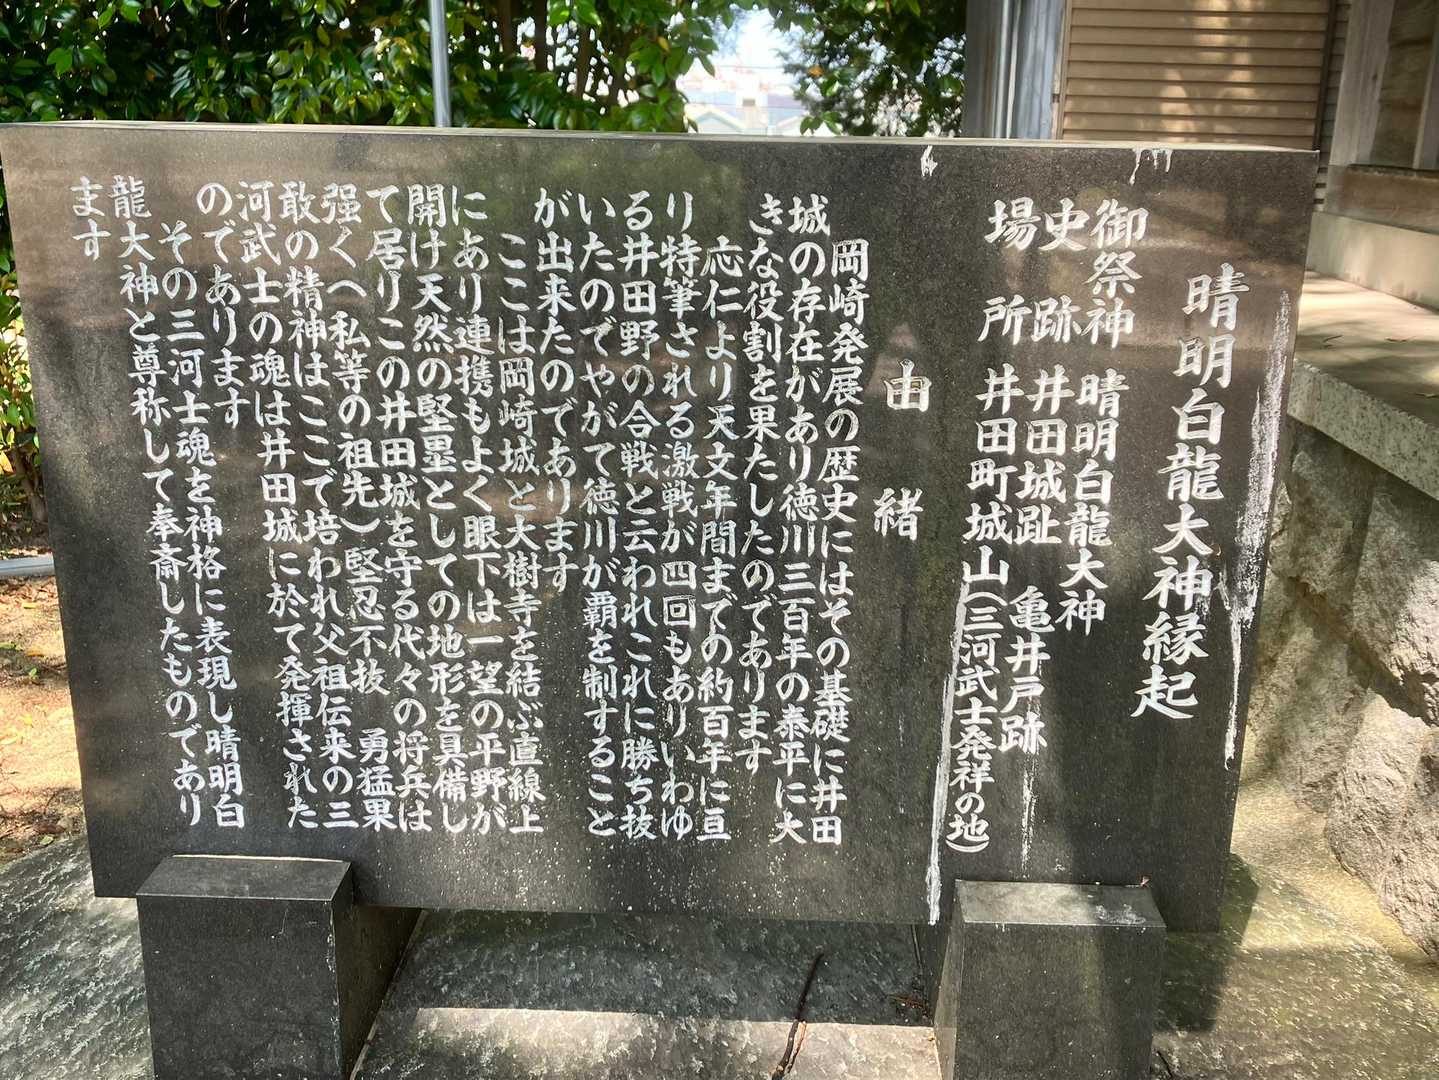 晴明白龍大神縁起
御祭神 晴明白龍大神
史跡 井田城趾 亀井戸跡
場所 井田町城山(三河武士発祥の地)
由緒
岡崎発展の歴史にはその基礎に井田
城の存在があり徳川三百年の泰平に大
きな役割を果たしたのであります
応仁より天文年間までの約百年に亘
り特筆される激戦が四回もありいわゆ
る井田野の合戦と云われこれに勝ち抜
いたのでやがて徳川が覇を制すること
が出来たのであります
ここは岡崎城と大樹寺を結ぶ直線上
にあり連携もよく眼下は一望の平野が
開け天然の堅塁としての地形を具備し
て居りこの井田城を守る代々の将兵は
强くへ私等の祖先)堅忍不抜 勇猛果
敢の精神はここで培われ父祖伝来の三
河武士の魂は井田城に於て発揮された
のであります
その三河士魂を神格に表現し晴明白
龍大神と尊称して奉斎したものであり
ます